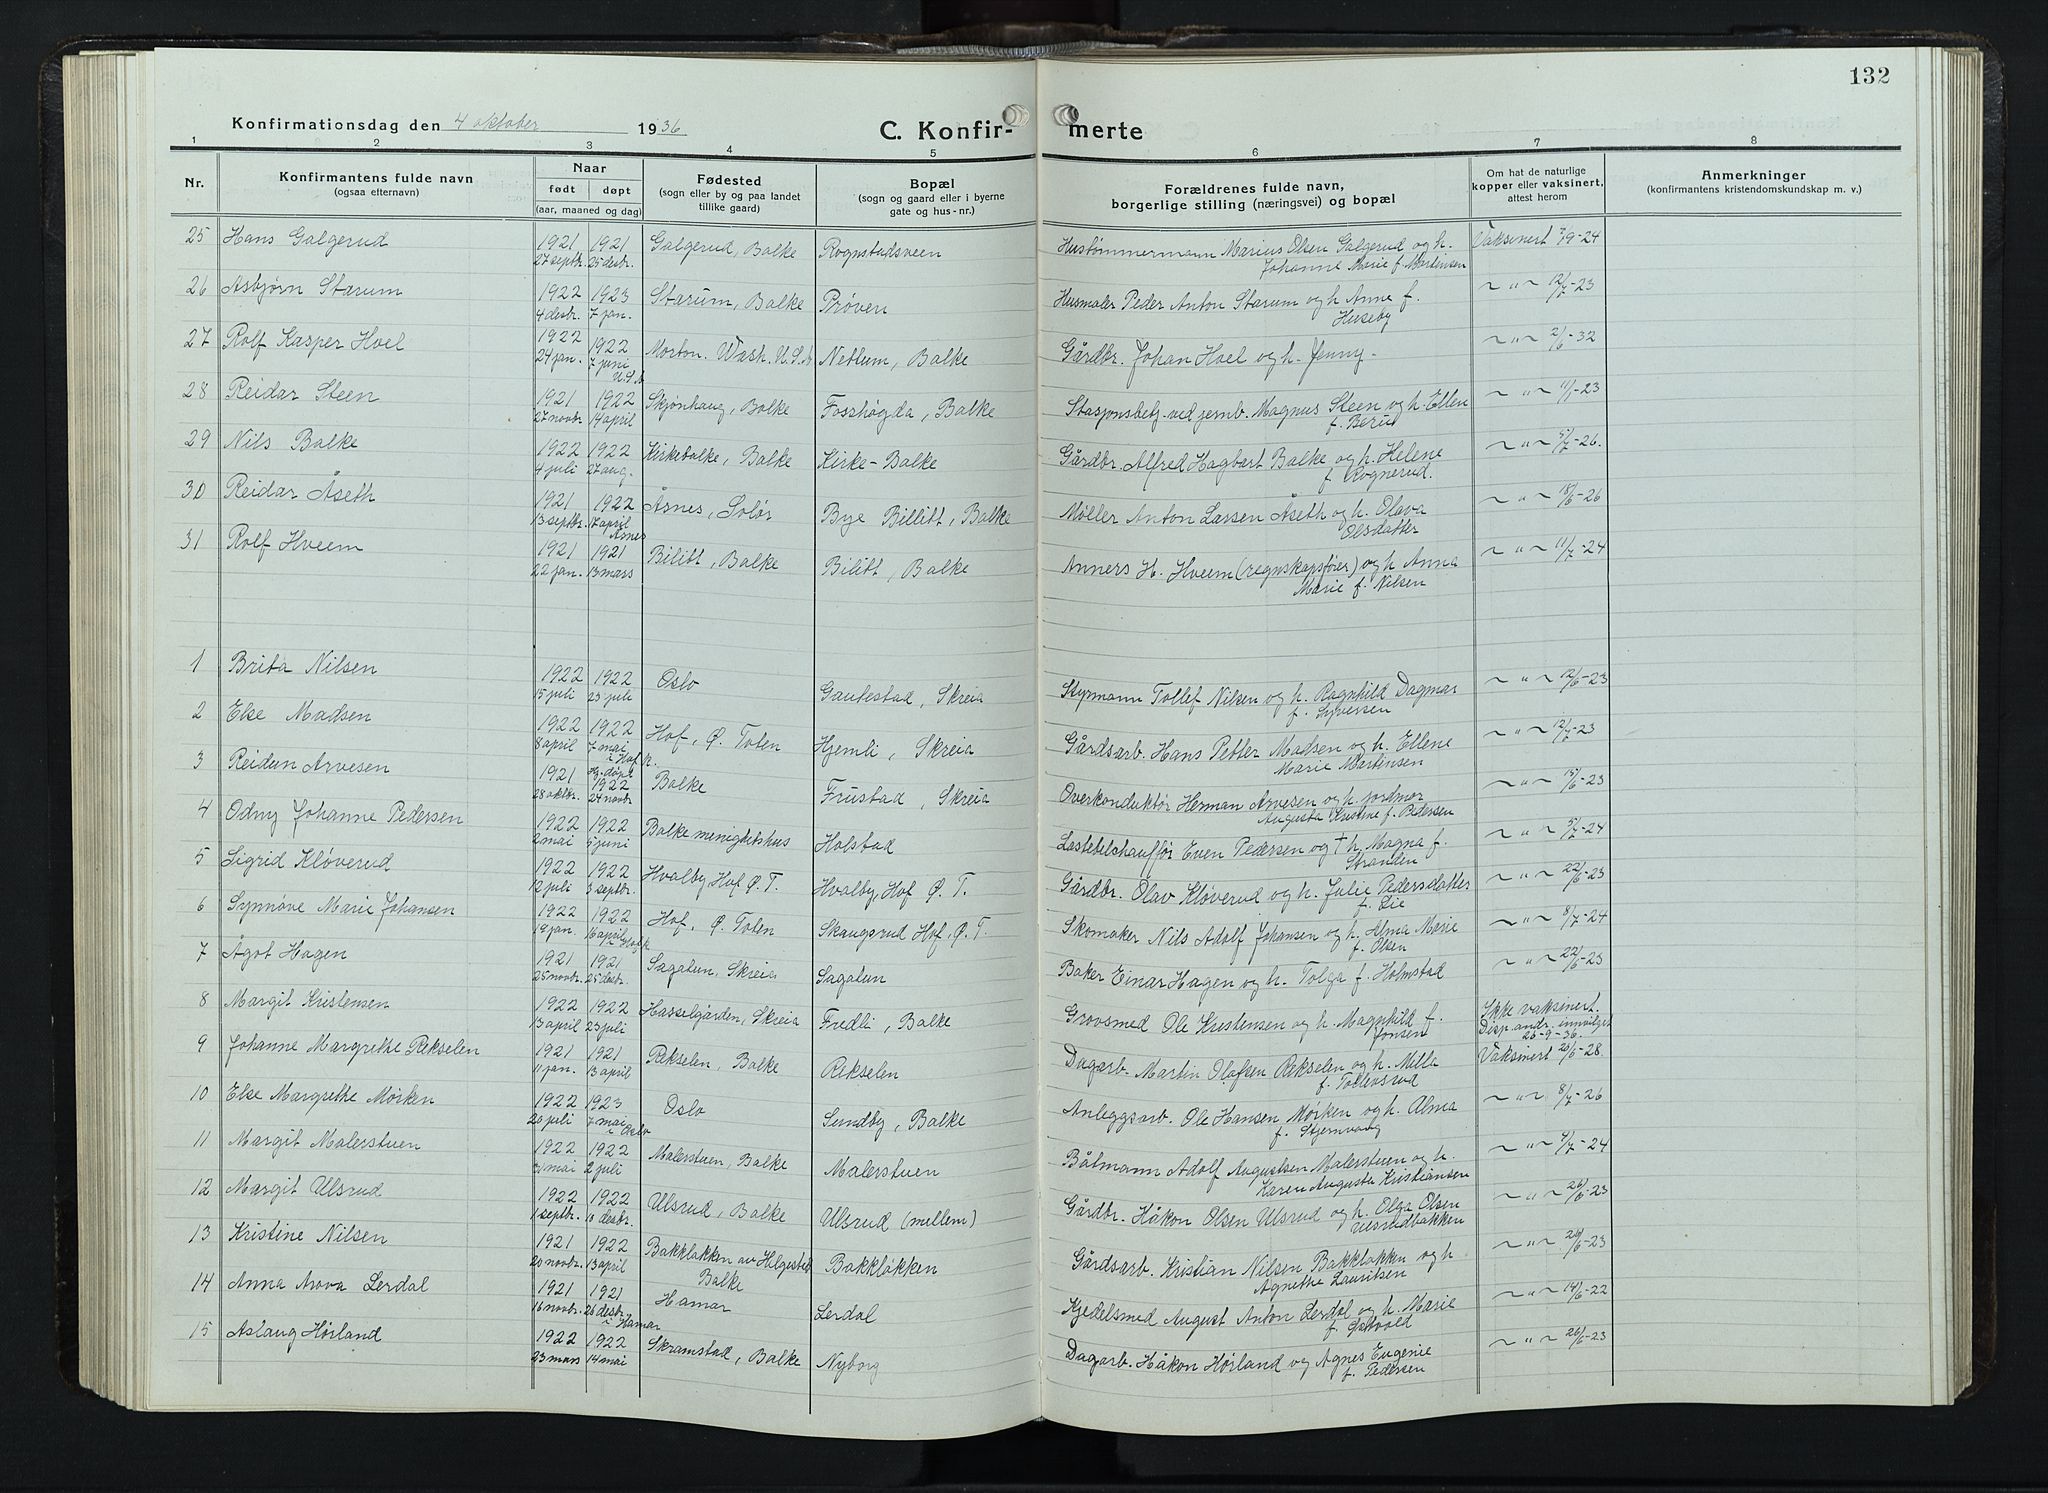 132
Konfirmationsdag den 4 oktober 1936 C. Konfirmerte
1 2 3 4 5 6 7 8
Nr. Konfirmantens fulde navn (ogsaa efternavn) Naar født døpt (aar, maaned og dag) Fødested (sogn eller by og paa landet tillike gaard) Bopæl (sogn og gaard eller i byerne gate og hus-nr.) Forældrenes fulde navn, borgerlige stilling (næringsvei) og bopæl Om hat de naturlige kopper eller vaksinert, attest herom Anmerkninger (konfirmantens kristendomskundskap m. v.)
25 Hans Galgerud 1921 1921 Galgerud, Balke Rognstadsveen Hustømmermann Marius Olsen Galgerud og h. Vaksinert 7/9-24
27 septbr. 25 desbr. Johanne Marie f. Martinsen
26 Asbjørn Starum 1922 1923 Starum, Balke Prøven Husmaler Peder Anton Starum og h. Anne f. ~ " ~ 12/7-23
4 desbr. 7 jan. Huseby
27 Rolf Kasper Hoel 1922 1922 Morton. Wash. U.S.A Nettum, Balke Gårdbr. Johan Hoel og h. Jenny- ~ " ~ 2/6-32
24 jan. 7 juni U.S.A
28 Reidar Steen 1921 1922 Skjønhaug, Balke Fosshøgda, Balke Stasjonsbetj. ved jernb. Magnus Steen og h. Ellen ~ " ~ 11/7-23
27 novbr. 14 april f. Berud
29 Nils Balke 1922 1922 Kirkebalke, Balke Kirke-Balke Gårdbr. Alfred Hagbart Balke og h. Helene ~ " ~ 5/7-26.
4 juli 27 aug. f. Rognerud.
30 Reidar Åseth 1921 1922 Åsnes, Solør Bye Billitt, Balke Møller Anton Larsen Åseth og h. Olava ~ " ~ 18/6-26
13 septbr. 17 april Åsnes Olsdatter
31 Rolf Hveem 1921 1921 Bilitt, Balke Bilitt, Balke Anners H. Hveem (regnskapsfører) og h. Anna ~ " ~ 11/7-24
22 jan. 13 mars Marie f. Nilsen
1 Brita Nilsen 1922 1922 Oslo Gautestad, Skreia Styrmann Tollef Nilsen og h. Ragnhild Dagmar ~ " ~ 12/6-23
15 juli 23 juli f. Syversen
2 Else Madsen 1922 1922 Hof, Ø. Toten Hjemli, Skreia Gårdsarb. Hans Petter Madsen og h. Ellene ~ " ~ 12/7-23
8 april 7 mai i Hof k. Marie Martinsen
3 Reidun Arvesen 1921 Hj. døpt 1922 Balke Frustad, Skreia Overkonduktør Herman Arvesen og h. jordmor ~ " ~ 15/6-23
28 oktbr. 24 novbr Augusta Kristine f. Pedersen
4 Odny Johanne Pedersen 1922 1922 Balke menighetshus Holstad Lastebilchauffør Even Pedersen og † h. Magna f. ~ " ~ 5/7-24
2 mai 5 juni Stranden
5 Sigrid Kløverud 1922 1922 Hvalby, Hof Ø. T. Hvalby, Hof Ø. T. Gårdbr. Olav Kløverud og h. Julie Pedersdatter ~ " ~ 22/6-23
12 juli 3 septbr. f. Lie
6 Synnøve Marie Johansen 1922 1922 Hof, Ø. Toten Skaugsrud Hof, Ø. T. Skomaker Nils Adolf Johansen og h. Alma Marie ~ " ~ 8/7-24
19 jan. 16 april i Hof k f. Olsen
7 Ågot Hagen 1921 1921 Sagatun, Skreia Sagatun Baker Einar Hagen og h. Tolga f. Holmstad ~ " ~ 22/6-23
25 novbr. 25 desbr.
8 Margit Kristensen 1922 1922 Hasselgården, Skreia Fredli, Balke Grovsmed Ole Kristensen og h. Magnhild f. Ikke vaksinert.
13 april 23 juli Jonsen Disp.andr. innvilget 26-9-36.
9 Johanne Margrethe Rekselen 1921 1921 Rekselen, Balke Rekselen Dagarb. Martin Olafsen Rekselen og h. Milla Vaksinert 20/6-28.
11 jan. 13 april f. Tollevsrud
10 Else Margrethe Mørken 1922 1923 Oslo Sundby, Balke Anleggsarb. Ole Hansen Mørken og h. Alma ~ " ~ 8/7-26
20 juli 7 mai i Oslo f. Stjernvang
11 Margit Malerstuen 1922 1922 Malerstuen, Balke Malerstuen Båtmann Adolf Augustsen Malerstuen og h. ~ " ~ 4/7-24
mai 2 juli Karen Auguste Kristiansen
12 Margit Ulsrud 1922 1922 Ulsrud, Balke Ulsrud (mellem) Gårdbr. Håkon Olsen Ulsrud og h. Olga Olsen ~ " ~ 26/6-23
1 septbr. 10 desbr. Ulsrudbakken
13 Kristine Nilsen 1921 1922 Bakkløkken av Helgestad Bakkløkken Gårdsarb. Kristian Nilsen Bakkløkken og h ~ " ~ 26/6-23
20 novbr. 13 april Balke Agnethe Lauritsen
14 Anna Arova Lerdal 1921 1921 Hamar Lerdal Kjedelsmed August Anton Lerdal og h. Marie ~ " ~ 14/6-22
16 novbr. 26 desbr i Hamar f. Østvold
15 Aslaug Hørland 1922 1922 Skramstad, Balke Nyborg Dagarb. Håkon Hørland og Agnes Eugenie ~ " ~ 26/6-23
23 mars 14 mai f. Pedersen